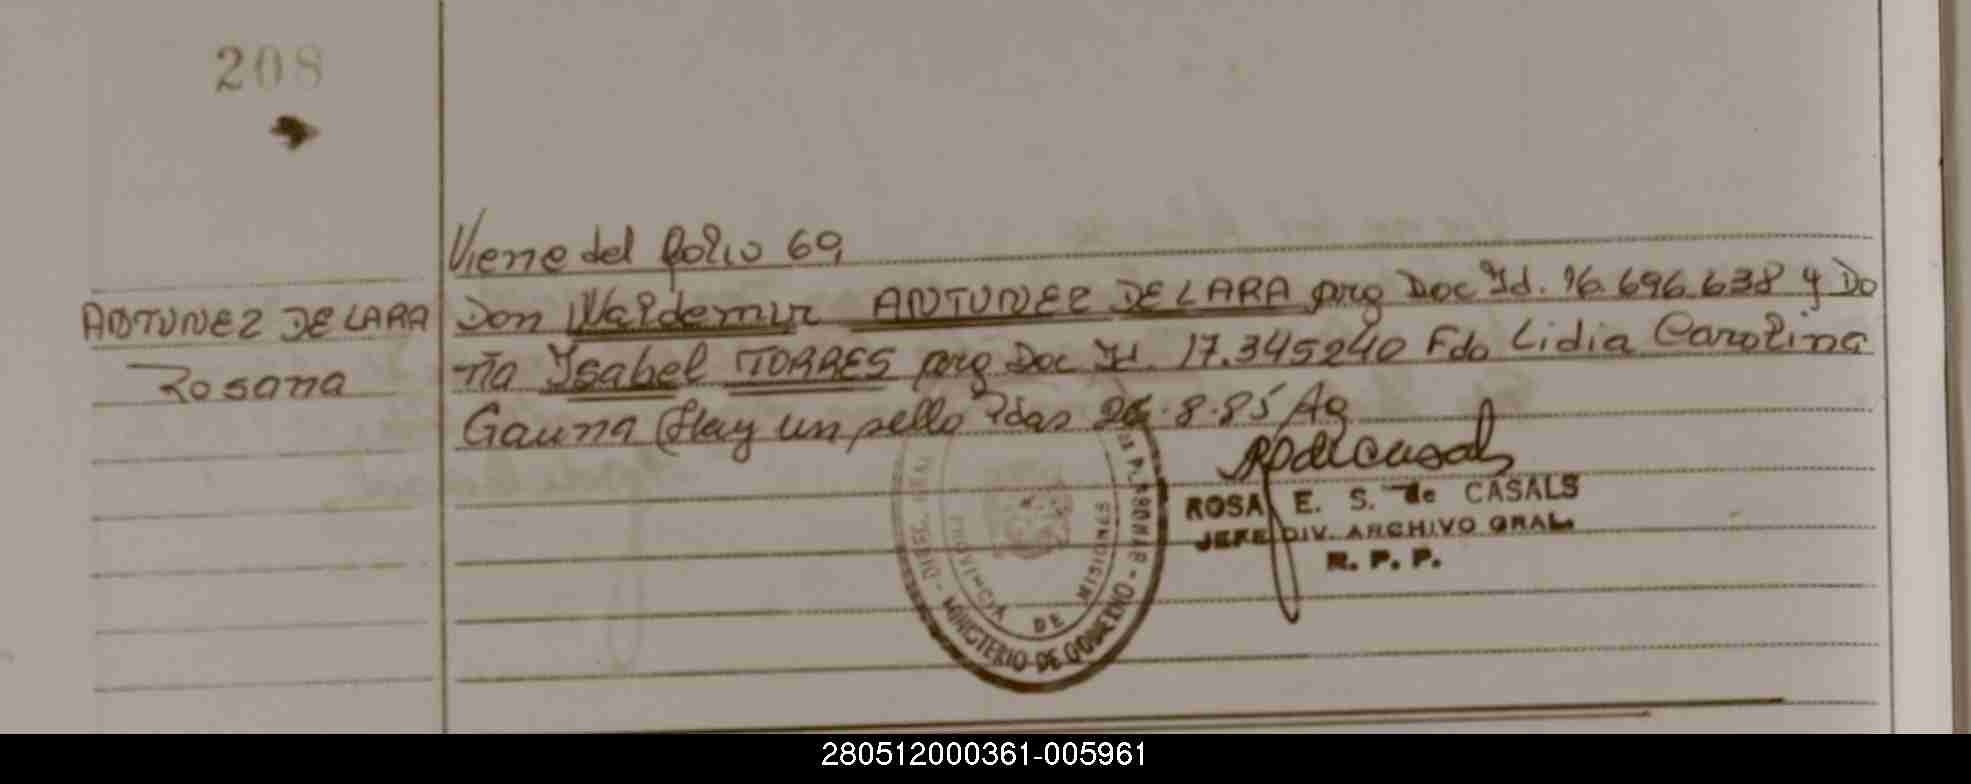 208
Viene del folio 69,
ANTUNEZ DE LARA
Rosana
Don Waldemir ANTUNEZ DE LARA arg Doc Id. 16.696.638 y Do
ña Ysabel TORRES arg Doc Id. 17.345240 Fdo Lidia Carolina
Gauna (Hay un sello) Pdas 26.8.85 Ag
ROSA E. S. de CASALS
JEFE DIV. ARCHIVO GRAL.
R. P. P.
PROVINCIA DE MISIONES
MINISTERIO DE GOBIERNO
280512000361-005961